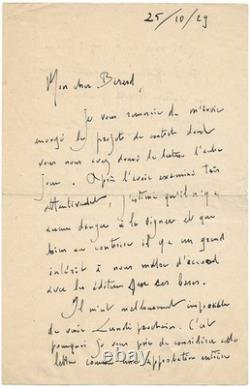 25/10/29
Mon cher Berend,
Je vous remercie de m'avoir
envoyé le projet de contrat dont
vous nous avez donné la lecture l'autre
jour. Après l'avoir examiné très
attentivement, j'estime qu'il n'y a
aucun danger à le signer et que
bien au contraire il y a un grand
intérêt à nous mettre d'accord
avec les éditeurs sur ses bases.
Il m'est malheureusement impossible
de venir Lundi prochain. C'est
pourquoi je vous prie de considérer cette
lettre comme une approbation entière